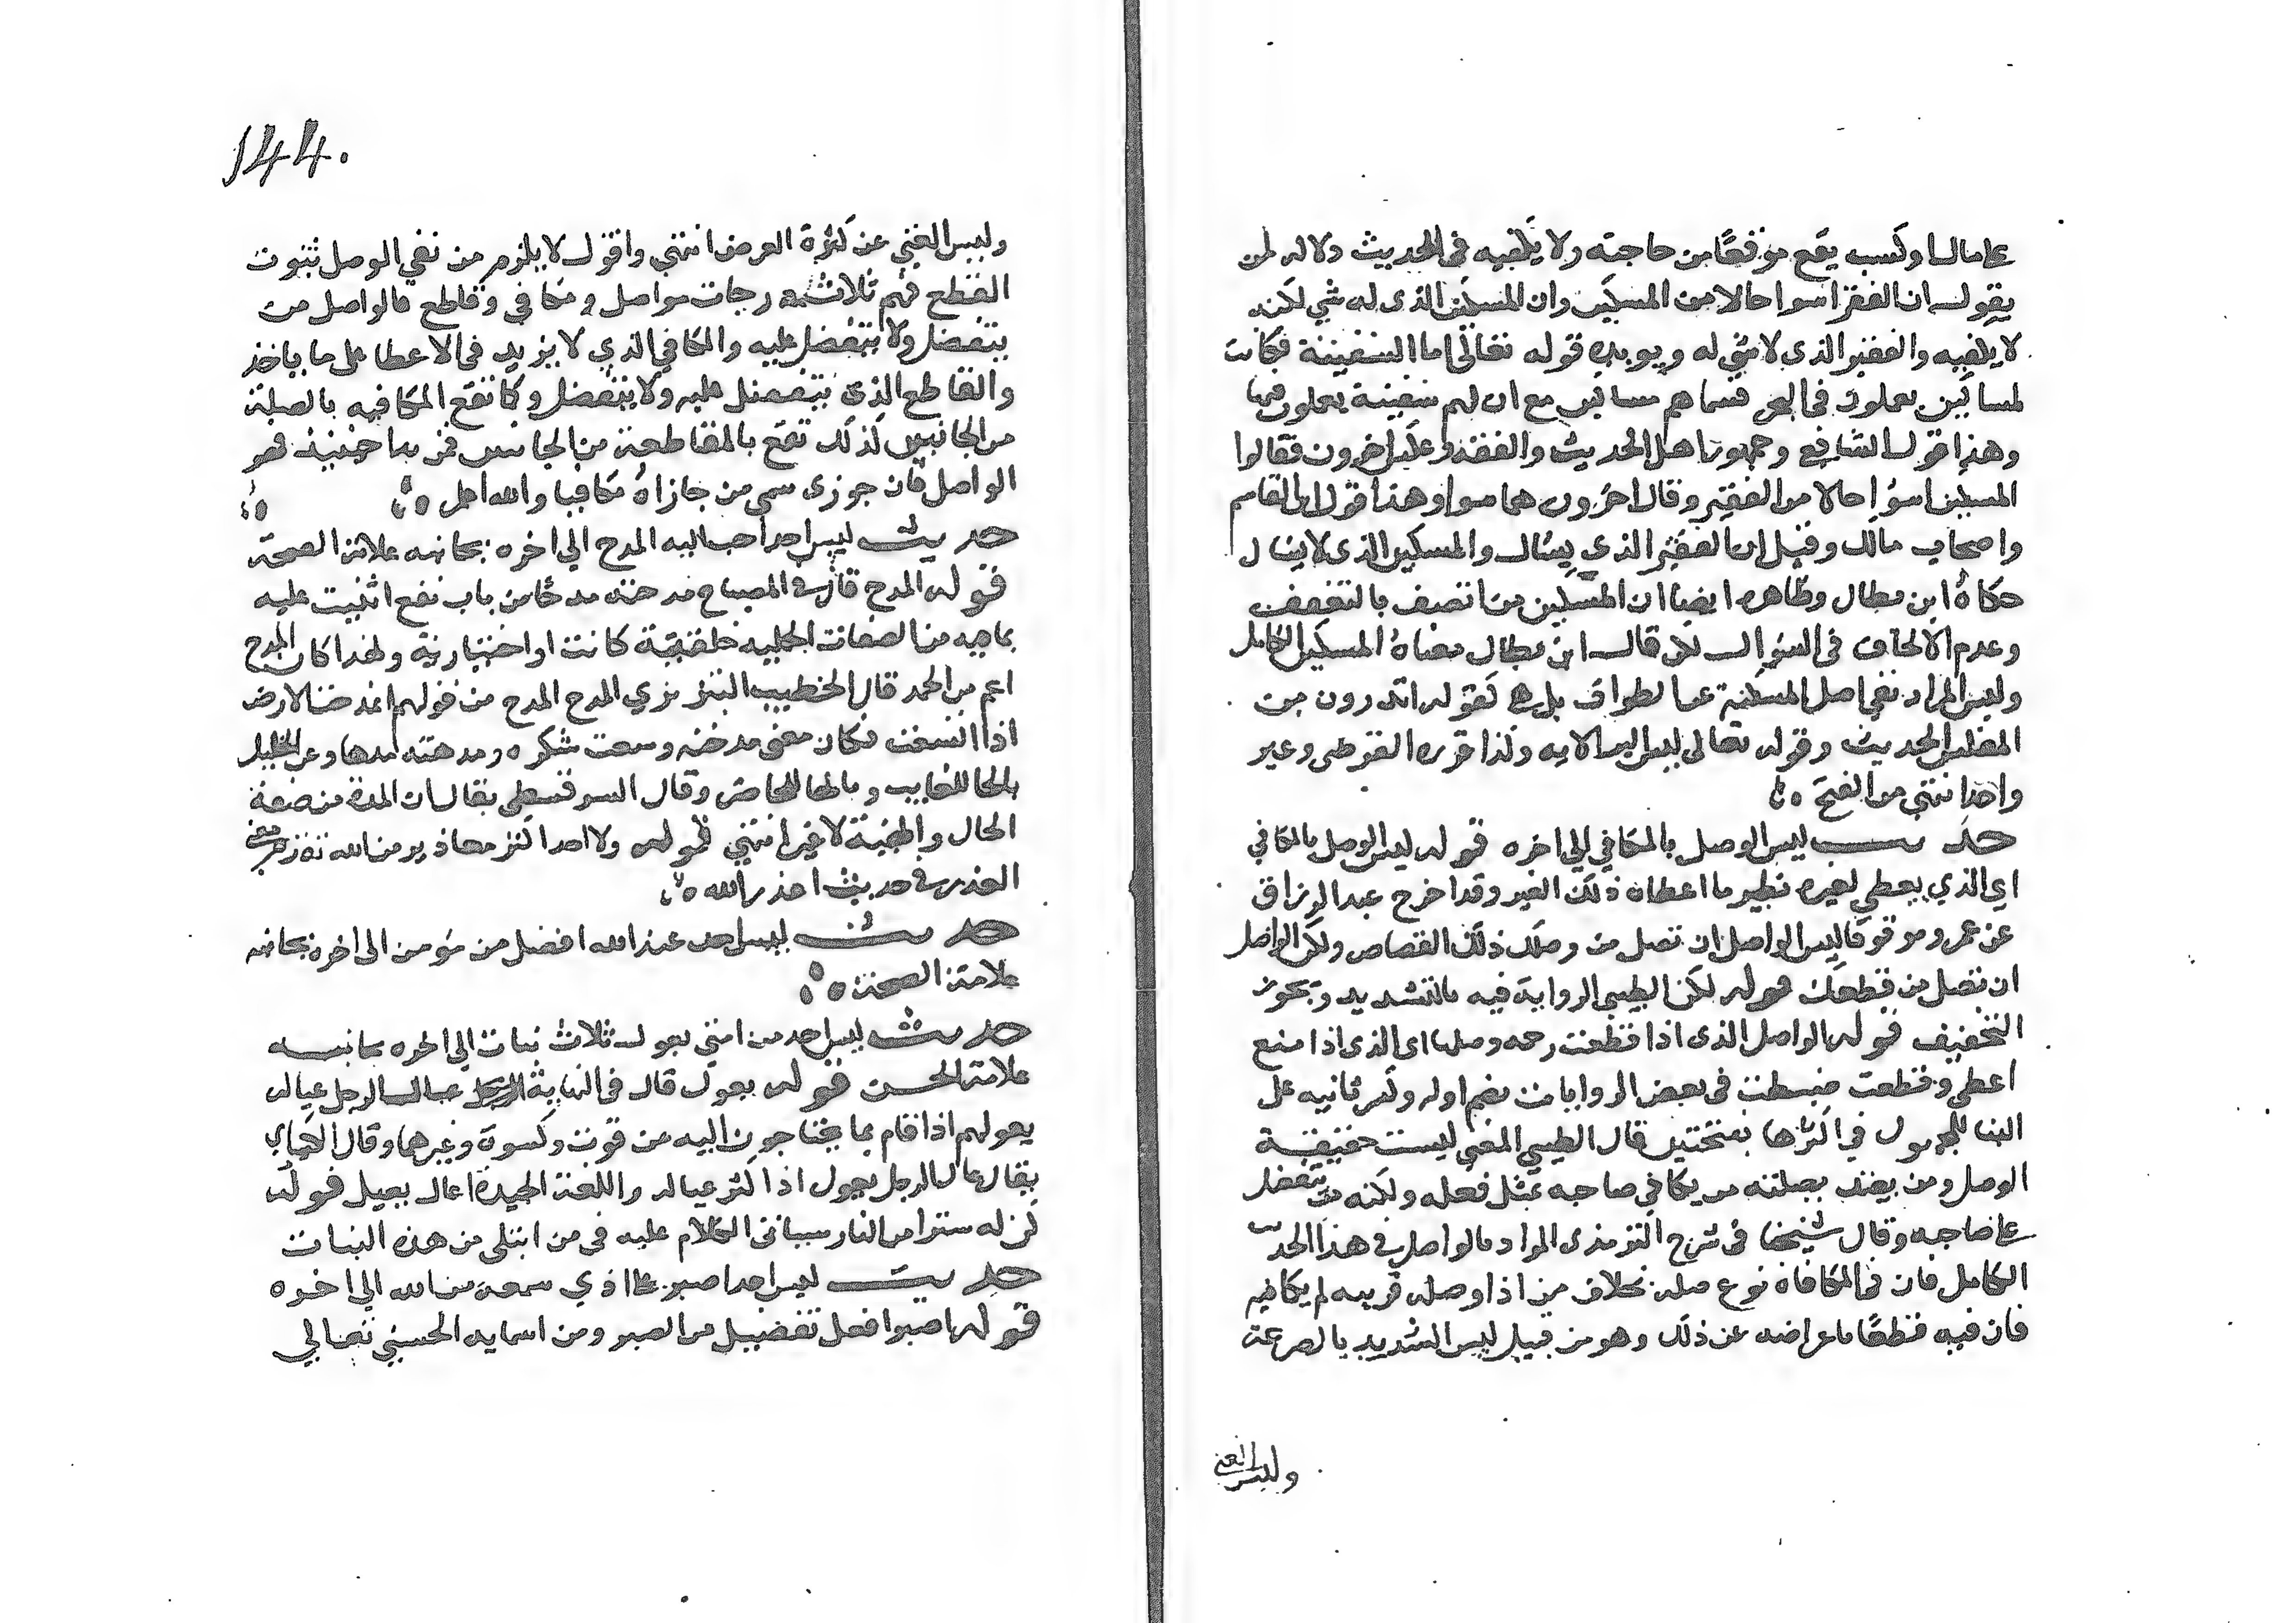 على مال او كسب يقع موقعًا من حاجته ولا يكفيه في الحديث دلالة لمن
يقول ان الفقير اسوا حالا من المسكين وان المسكين الذي له شي لكنه
لا يكفيه والفقير الذي لا شي له ويويده قوله تعالى اما السفينة فكانت
لمساكين يعملون في البحر فسماهم مساكين مع ان لهم سفينة يعملون فيها
وهذا قول الشافعي وجمهور اهل الحديث والفقه وعكس اخرون فقالوا
المسكين اسؤ حالا من الفقير وقال اخرون هما سوا وهذا قول ابن القاسم
واصحاب مالك وقيل ان الفقير الذي يسئال والمسكين الذي لا يسال
حكاه ابن بطال وظاهره ايضا ان المسكين من اتصف بالتعفف
وعدم الالحاف في السؤال لكن قال ابن بطال معناه المسكين الكامل
وليس المراد نفي اصل المسكنة عن الطواف بل هي كقوله اتدرون من
المفلس الحديث وقوله تعالى ليس البر الاية وكذا قرره القرطبي وغير
واحد انتهى من الفتح
حديث ليس الوصل بالمكافي الى اخره قوله ليس الوصل بالمكافي
اي الذي يعطي لغيره نظير ما اعطاه ذلك الغير وقد اخرج عبد الرزاق
عن عمر وموقوفا ليس الواصل ان تصل من وصلك ذلك القصاص ولكن الواصل
ان تصل من قطعك قوله لكن الطيبي الرواية فيه بالتشديد ويجوز
التخفيف قوله الواصل الذي اذا قطعت رحمه وصلها اي الذي اذا منع
اعطى وقطعت ضبطت في بعض الروايات بضم اوله وكسر ثانيه على
البنا للمجهول في اكثرها بفتحتين قال الطيبي المعنى ليست حقيقة
الوصل ومن يعتد بصلته من يكافي صاحبه بمثل فعله ولكنه من يتفضل
على صاحبه وقال شيخنا في شرح الترمذي المراد بالواصل في هذا الحديث
الكامل فان في المكافاة نوع صلة بخلاف من اذا وصله قريبه لم يكافيه
فان فيه قطعًا باعراضه عن ذلك وهو من قبيل ليس الشديد بالصرعة
وليس الغني
144.
وليس الغني عن كثرة العرض انتهى واقول لا يلزم من نفي الوصل ثبوت
القطع فهم ثلاث درجات مواصل ومكافي وقاطع فالواصل من
يتفضل ولا يتفضل عليه والمكافي الذي لا يزيد في الاعطا على ما ياخذ
والقاطع الذي يتفضل عليه ولا يتفضل وكما تقع المكافيه بالصلة
من الجانبين كذلك تقع بالمقاطعة من الجانبين فمن بدا حينئذ فهو
الواصل فان جوزي سمي من جازاه مكافيا والله اعلم
حديث ليس احد احب اليه المدح الى اخره بجانبه علامة الصحة
قوله المدح قال في المصباح مدحته مدحًا من باب نفع اثنيت عليه
بما فيه من الصفات الجميلة خلقية كانت او اختيارية ولهذا كان المدح
اعم من الحمد قال الخطيب التبريزي المدح المدح من قولهم انمدحت الارض
اذا اتسعت فكان معنى مدحته وسعت شكره ومدهته مدها وعن الخليل
بالحا للغايب وبالها للحاضر وقال السرقسطي يقال ان المده من صفة
الحال والهيئة لا غير انتهى قوله ولا احد اكثر معاذير من الله تقدم معنى
العذر في حديث اعذر الله
حديث ليس احد عند الله افضل من مؤمن الى اخره بجانبه
علامة الصحة
حديث ليس احد من امتي يعول ثلاث بنات الى اخره بجانبه
علامة الحسن قوله يعول قال في النهاية عال الرجل عياله
يعولهم اذا قام بما يحتاجون اليه من قوت وكسوة وغيرهما وقال الكسائي
يقال عال الرجل يعول اذا كثر عياله واللغة الجيدة اعال يعيل قوله
كن له سترا من النار سياتي الكلام عليه في من ابتلي من هذه البنات
حديث ليس احد اصبر على اذي سمعه من الله الى اخره
قوله اصبر افعل تفضيل من الصبر ومن اسمايه الحسنى تعالى